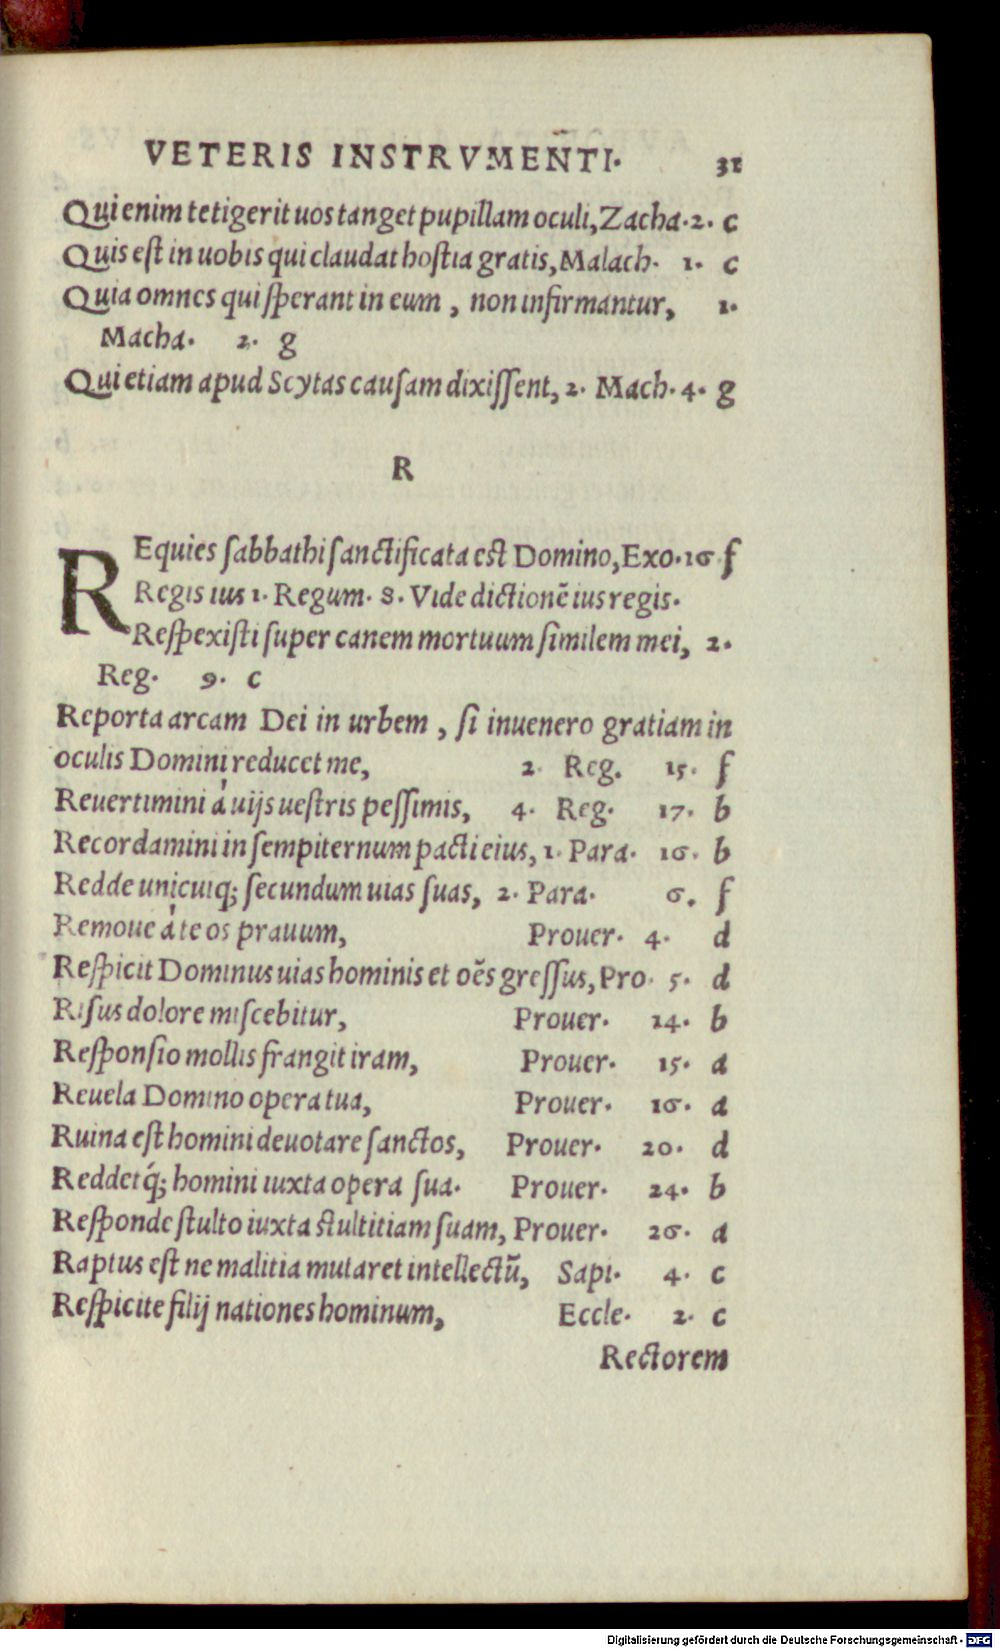 VETERIS INSTRVMENTI. 31
Qui enim tetigerit uos tanget pupillam oculi, Zacha. 2. c
Quis est in uobis qui claudat hostia gratis, Malach. 1. c
Quia omnes qui sperant in eum, non infirmantur, 1.
Macha. 2. g
Qui etiam apud Scytas causam dixissent, 2. Mach. 4. g
R
REquies sabbathi sanctificata est Domino, Exo. 16 f
Regis ius 1. Regum. 8. Vide dictionē ius regis.
Respexisti super canem mortuum similem mei, 2.
Reg. 9. c
Reporta arcam Dei in urbem, si inuenero gratiam in
oculis Domini reducet me, 2. Reg. 15. f
Reuertimini á uijs uestris pessimis, 4. Reg. 17. b
Recordamini in sempiternum pacti eius, 1. Para. 16. b
Redde unicuiq; secundum uias suas, 2. Para. 6. f
Remoue á te os prauum, Prouer. 4. d
Respicit Dominus uias hominis et oēs gressus, Pro. 5. d
Risus dolore miscebitur, Prouer. 14. b
Responsio mollis frangit iram, Prouer. 15. a
Reuela Domino opera tua, Prouer. 16. a
Ruina est homini deuotare sanctos, Prouer. 20. d
Reddetq́; homini iuxta opera sua. Prouer. 24. b
Responde stulto iuxta stultitiam suam, Prouer. 26. a
Raptus est ne malitia mutaret intellectū, Sapi. 4. c
Respicite filij nationes hominum, Eccle. 2. c
Rectorem
Digitalisierung gefördert durch die Deutsche Forschungsgemeinschaft - DFG